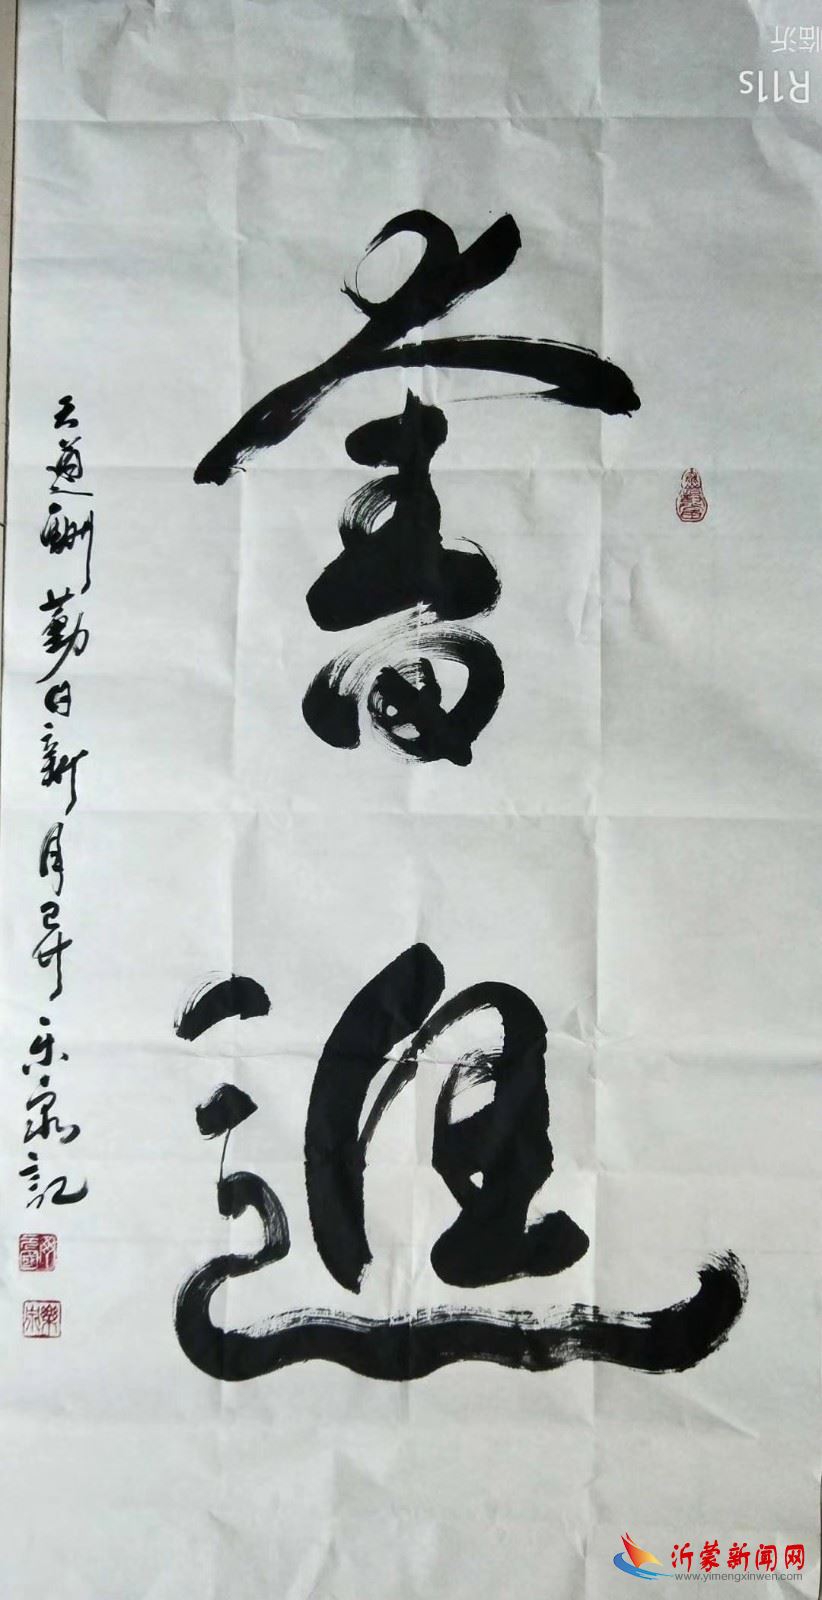 奮進
天道酬勤日新月异
乐泉記
沂蒙新闻网
www.yimengxinwen.com
R11s
临沂